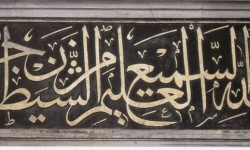 الله السميع العليم من الشيطان